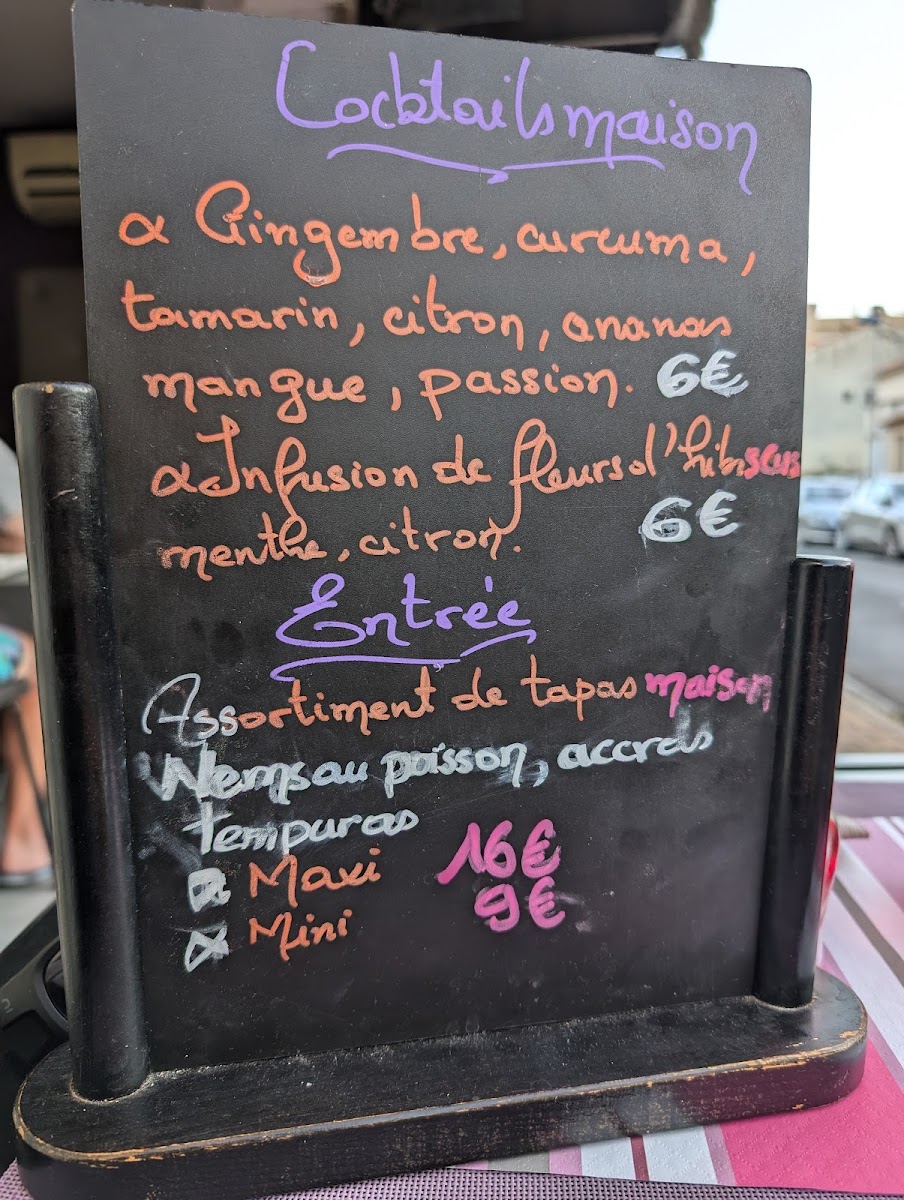 Cocktails maison
α Gingembre, curcuma,
tamarin, citron, ananas
mangue, passion. 6€
α Infusion de fleurs d'hibiscus
menthe, citron. 6€
Entrée
Assortiment de tapas maison
Nems au poisson, accras
tempuras
Maxi 16€
Mini 9€